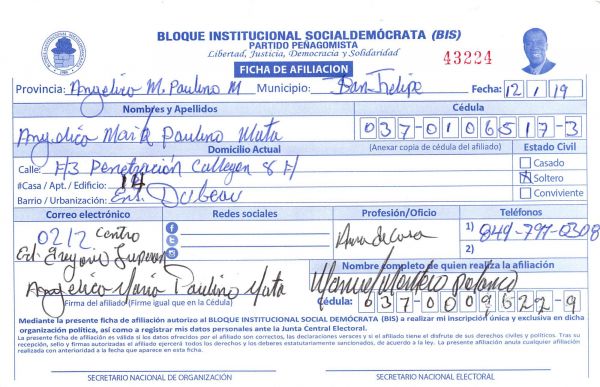 BLOQUE INSTITUCIONAL SOCIALDEMÓCRATA (BIS)
PARTIDO PEÑAGOMISTA
Libertad, Justicia, Democracia y Solidaridad
43224
FICHA DE AFILIACION
Provincia: Angelica M. Paulino M Municipio: San Felipe Fecha: 12/1/19
Nombres y Apellidos Cédula
Angelica Maria Paulino Mata 037-0106517-3
Domicilio Actual (Anexar copia de cédula del afiliado) Estado Civil
Calle: #3 Penetración Callejon 8 # Casado
#Casa / Apt. / Edificio: 14 X Soltero
Barrio / Urbanización: Ent. Dubeau Conviviente
Correo electrónico Redes sociales Profesión/Oficio Teléfonos
0212 Centro Ama de Casa 1) 849-797-0308
Ed. Gregorio 2)
Nombre completo de quien realiza la afiliación
Angelica Maria Paulino Mata Manuel Montero Polanco
Firma del afiliado (Firme igual que en la Cédula) Cédula: 037-0009622-9
Mediante la presente ficha de afiliación autorizo al BLOQUE INSTITUCIONAL SOCIAL DEMÓCRATA (BIS) a realizar mi inscripción única y exclusiva en dicha
organización política, así como a registrar mis datos personales ante la Junta Central Electoral.
La presente ficha de afiliación es válida si los datos ofrecidos por el afiliado son correctos, las declaraciones veraces y si el afiliado tiene el disfrute de sus derechos civiles y políticos. Tras su
recepción, sello y firmas autorizadas el afiliado ejercerá todos los derechos y los deberes estatutariamente sancionados, de acuerdo a la ley. La presente afiliación anula cualquier afiliación
realizada con anterioridad a la fecha que aparece en esta ficha.
SECRETARIO NACIONAL DE ORGANIZACIÓN SECRETARIO NACIONAL ELECTORAL